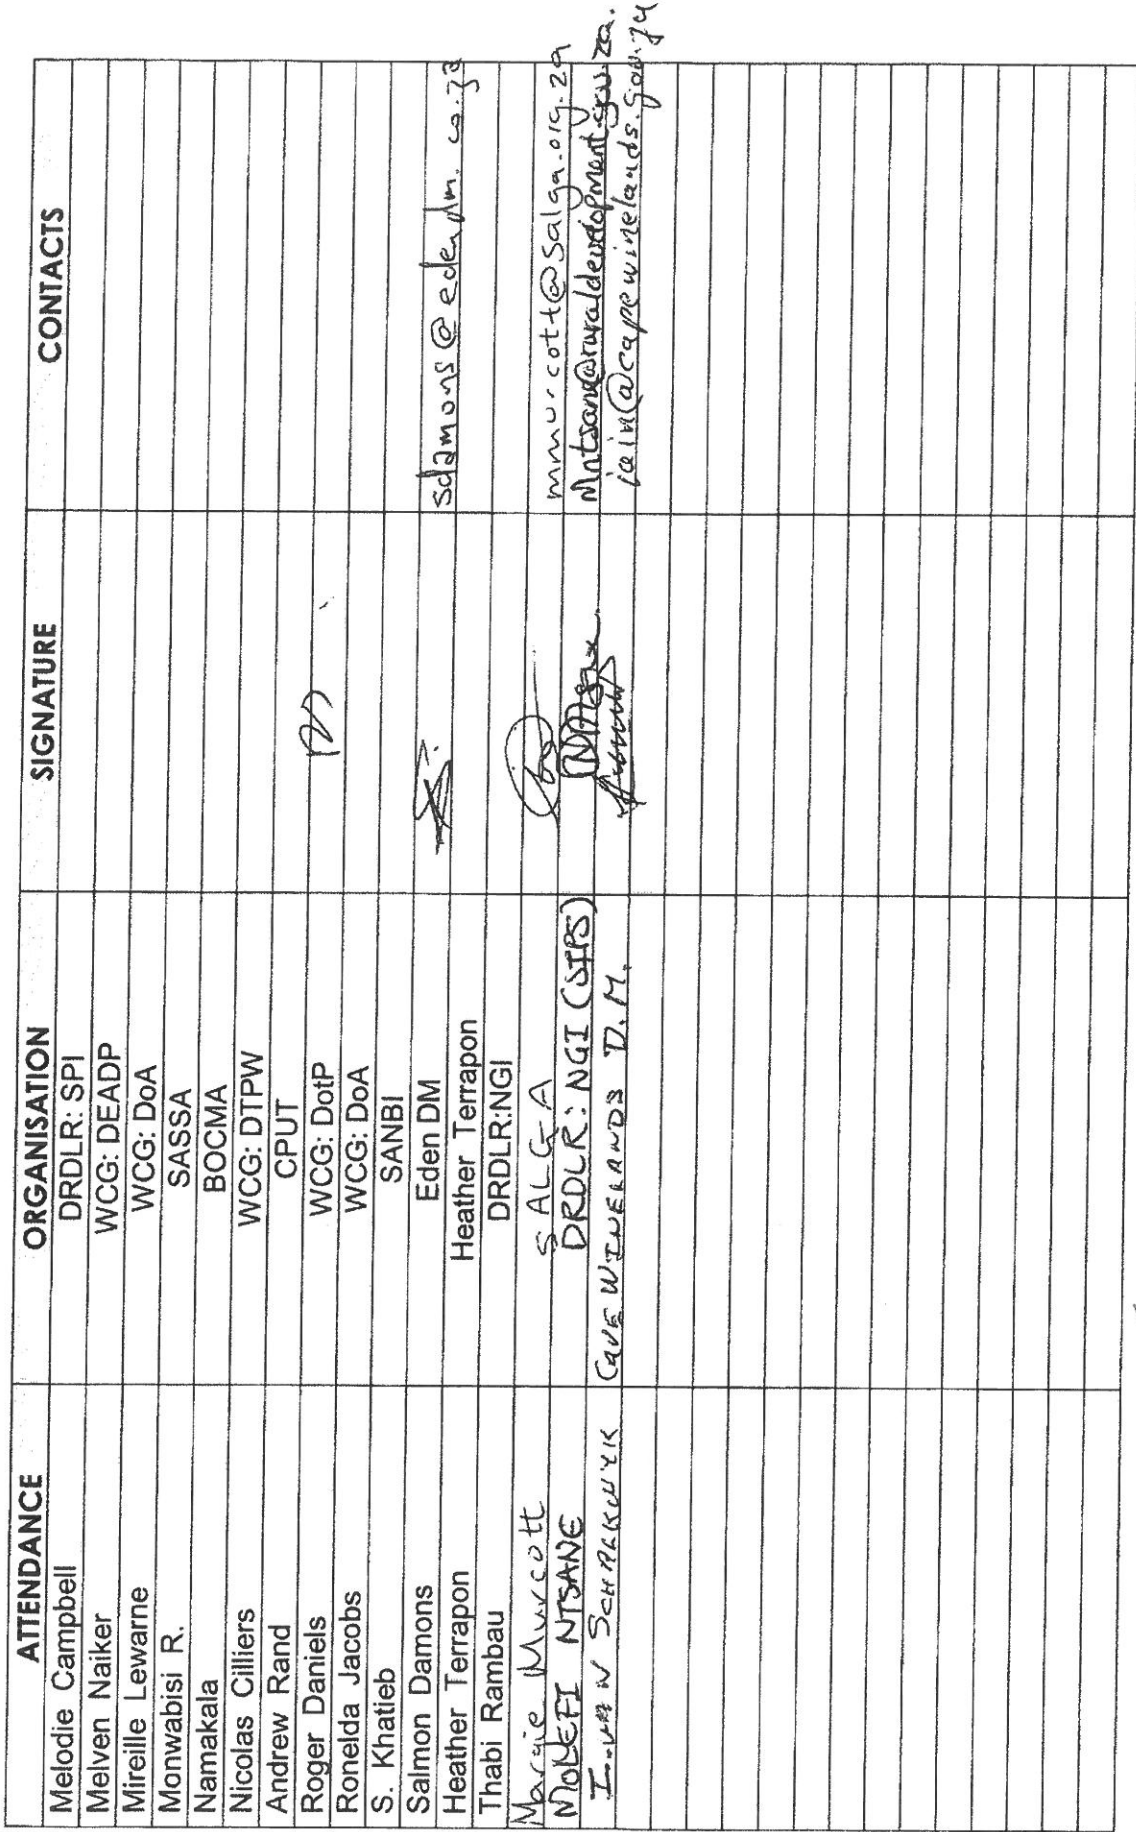 ATTENDANCE ORGANISATION SIGNATURE CONTACTS
Melodie Campbell DRDLR: SPI
Melven Naiker WCG: DEADP
Mireille Lewarne WCG: DoA
Monwabisi R. SASSA
Namakala BOCMA
Nicolas Cilliers WCG: DTPW
Andrew Rand CPUT
Roger Daniels WCG: DotP
Ronelda Jacobs WCG: DoA
S. Khatieb SANBI
Salmon Damons Eden DM sdamons@edendm.co.za
Heather Terrapon Heather Terrapon
Thabi Rambau DRDLR:NGI
Margie Murcott SALGA mmurcott@salga.org.za
MOLEFI NTSANE DRDLR: NGI (STPS) Mntsane@ruraldevelopment.gov.za.
SCHALKWYK CAPE WINELANDS D.M. @capewinelands.gov.za